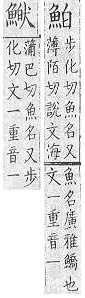 鮊
步化切魚名又
薄陌切說文海
魚名廣雅鱎也
文一重音一
蒲巴切魚名又步
化切文一重音一